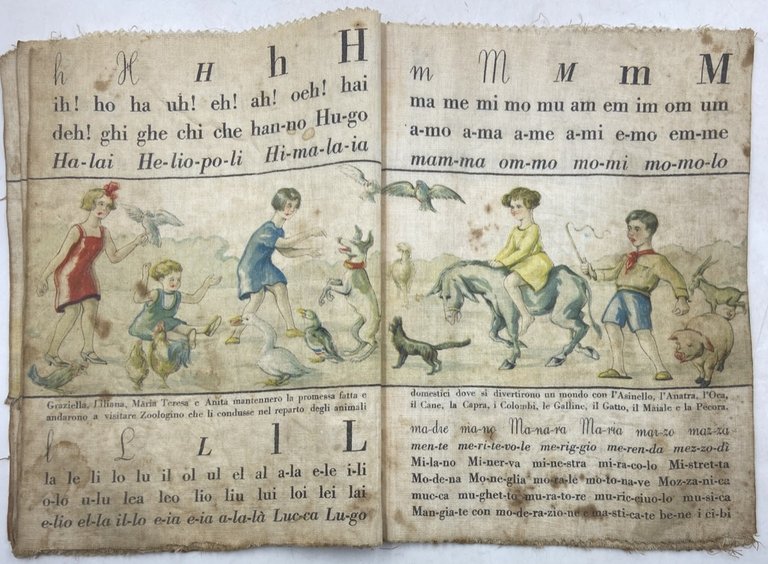 h H H h H
ih! ho ha uh! eh! ah! oeh! hai
deh! ghi ghe chi che han-no Hu-go
Ha-lai He-lio-po-li Hi-ma-la-ia
Graziella, Liliana, Maria Teresa e Anita mantennero la promessa fatta e
andarono a visitare Zoologino che li condusse nel reparto degli animali
l L L l L
la le li lo lu il ol ul el al a-la e-le i-li
o-lo u-lu lea leo lio liu lui loi lei lai
e-lio el-la il-lo e-ia e-ia a-la-là Luc-ca Lu-go
m M M m M
ma me mi mo mu am em im om um
a-mo a-ma a-me a-mi e-mo em-me
mam-ma om-mo mo-mi mo-mo-lo
domestici dove si divertirono un mondo con l'Asinello, l'Anatra, l'Oca,
il Cane, la Capra, i Colombi, le Galline, il Gatto, il Maiale e la Pecora.
ma-dre ma-no Ma-na-ra Ma-ria mar-zo maz-za
men-te me-ri-te-vo-le me-rig-gio me-ren-da mez-zo-dì
Mi-la-no Mi-ner-va mi-ne-stra mi-ra-co-lo Mi-stret-ta
Mo-de-na Mo-ne-glia mo-ra-le mo-to-na-ve Moz-za-ni-ca
muc-ca mu-ghet-to mu-ra-to-re mu-ric-ciuo-lo mu-si-ca
Man-gia-te con mo-de-ra-zio-ne e ma-sti-ca-te be-ne i ci-bi